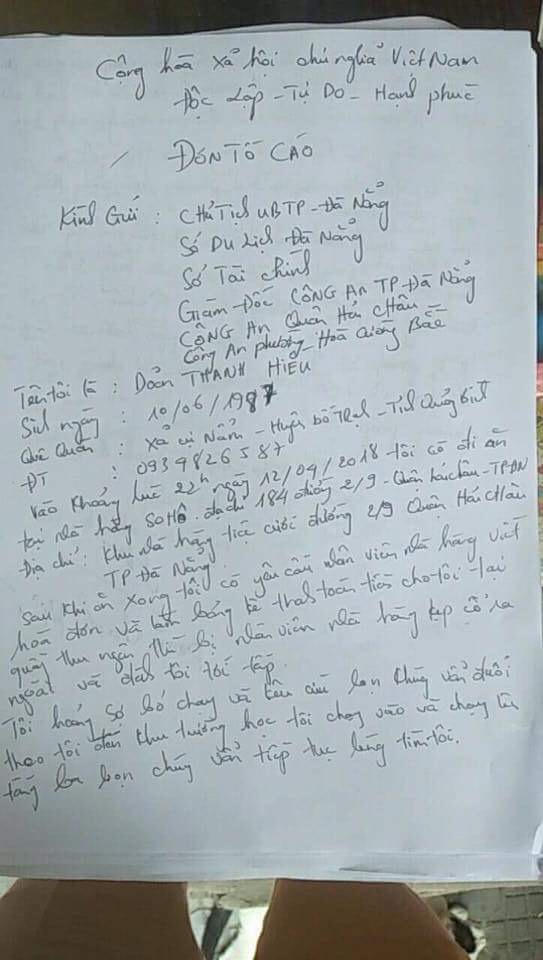 Cộng hòa xã hội chủ nghĩa Việt Nam
Độc Lập - Tự Do - Hạnh phúc
ĐƠN TỐ CÁO
Kính Gửi : CHỦ Tịch UBTP - Đà Nẵng
Sở Du Lịch Đà Nẵng
Sở Tài chính
Giám - Đốc CÔNG An TP - Đà Nẵng
CÔNG An Quận Hải Châu
Công An phường Hoà Cường Bắc
Tên tôi là : Doãn THANH HIẾU
Sinh ngày : 10/06/1987
Quê Quán : xã cự Nẫm - Huyện bố Trạch - Tỉnh Quảng Bình
ĐT : 0939826587
Vào khoảng lúc 22h ngày 12/04/2018 tôi có đi ăn
tại nhà hàng SOHO. địa chỉ 184 đường 2/9 - Quận hải châu - TPĐN
Địa chỉ : Khu nhà hàng tiệc cưới đường 2/9 Quận Hải Châu
TP Đà Nẵng
Sau khi ăn xong tôi có yêu cầu nhân viên nhà hàng viết
hoá đơn và làm bảng kê thanh toán tiền cho tôi tại
quầy thu ngân thì bị nhân viên nhà hàng kẹp cổ ra
ngoài và đánh tôi tới tấp.
Tôi hoảng sợ bỏ chạy và kêu cứu bọn chúng vẫn đuổi
theo tôi đến khu trường học tôi chạy vào và chạy lên
tầng ba bọn chúng vẫn tiếp tục lùng tìm tôi.